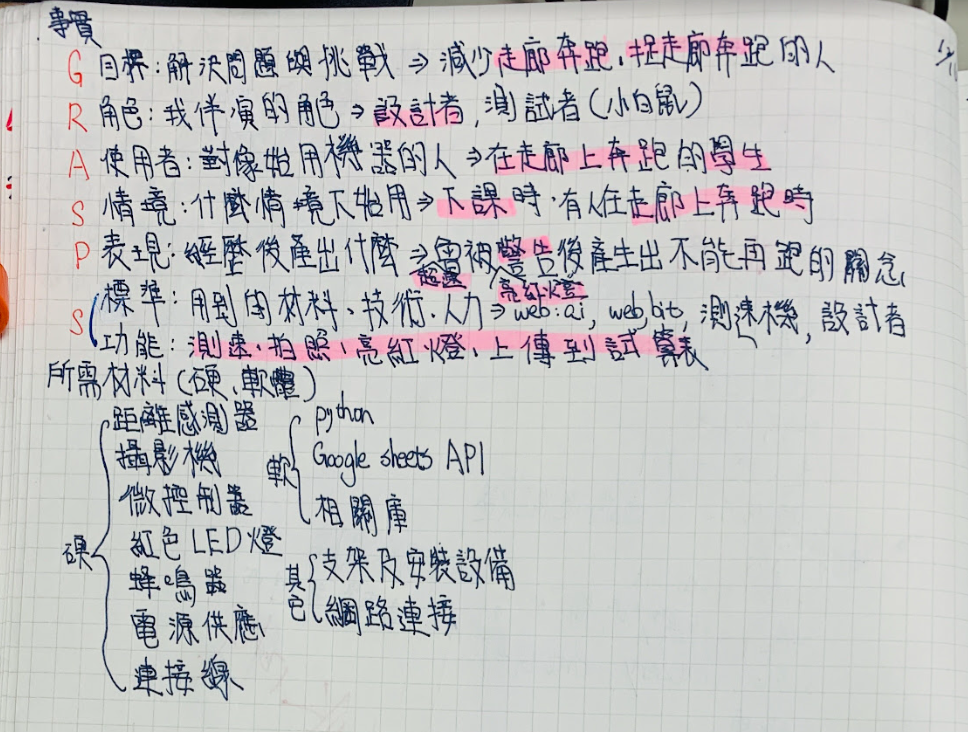 事實
G 目標:解決問題與挑戰 ⇒ 減少走廊奔跑、捉走廊奔跑的人
R 角色:我伴演的角色 ⇒ 設計者,測試者(小白鼠)
A 使用者:對像始用機器的人 ⇒ 在走廊上奔跑的學生
S 情境:什麼情境下始用 ⇒ 下課時,有人在走廊上奔跑時
P 表現:經歷後產出什麼 ⇒ 會被警告後產生出不能再跑的關念
超速 亮紅燈
S 標準:用到的材料、技術、人力 ⇒ web:ai, web,bit, 測速機, 設計者
功能:測速、拍照、亮紅燈、上傳到試算表
所需材料(硬、軟體)
硬
距離感測器
攝影機
微控制器
紅色LED燈
蜂鳴器
電源供應
連接線
軟
python
Google sheets API
相關庫
其它
支架及安裝設備
網路連接